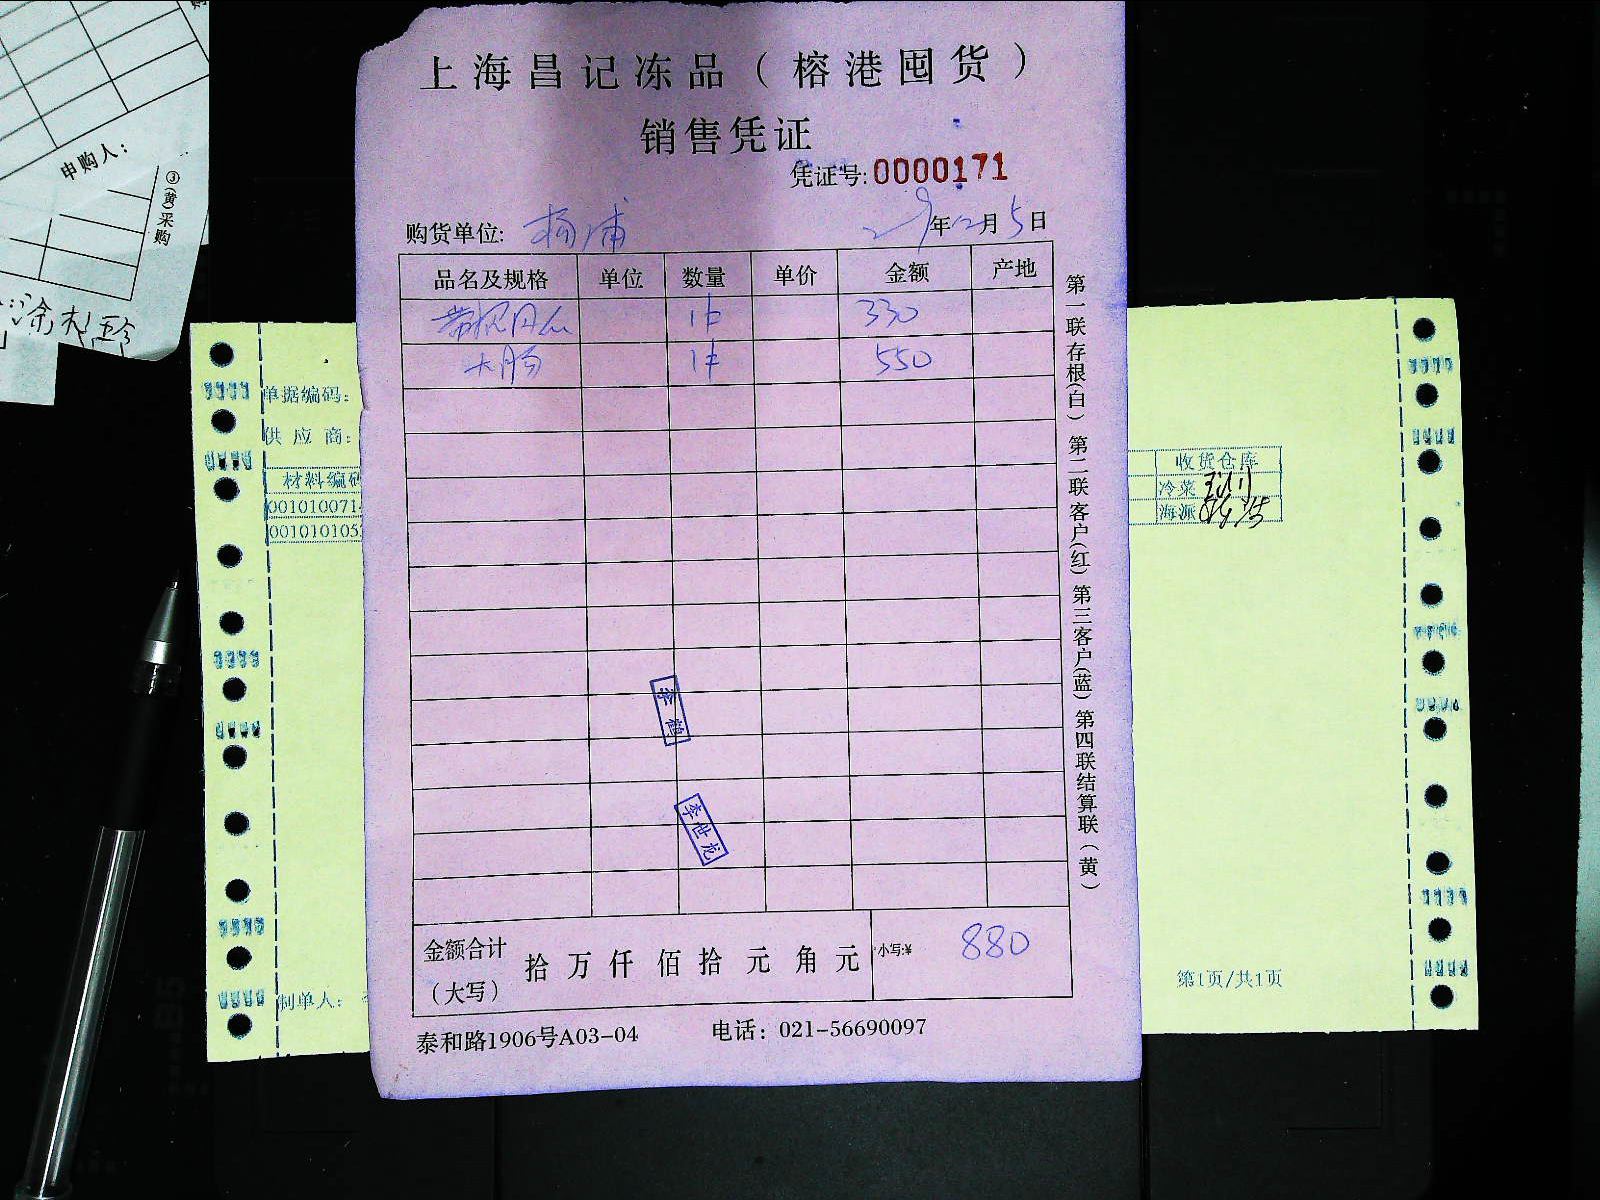 上海昌记冻品（榕港囤货）
销售凭证
凭证号:0000171
购货单位: 杨浦 年12月5日
品名及规格 单位 数量 单价 金额 产地
1件 330
大肠 1件 550
金额合计（大写） 拾 万 仟 佰 拾 元 角 元 小写:¥ 880
泰和路1906号A03-04 电话：021-56690097
第一联存根(白) 第二联客户(红) 第三客户(蓝) 第四联结算联(黄)
李世龙
申购人：
③(黄)采购
单据编码：
供应商：
材料编码
收货仓库
冷菜
海派
制单人：
第1页/共1页